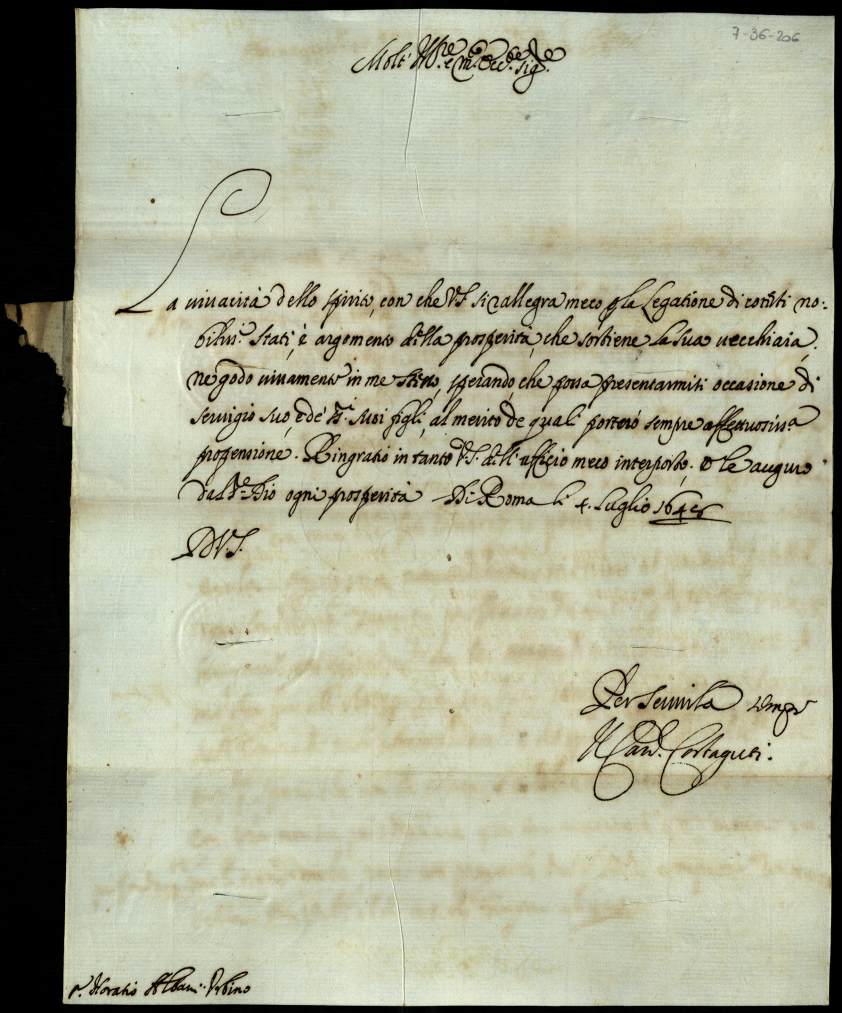 7-36-206
Molt' Ill.re e m.to Ecc.te Sig.re
La viuacità dello spirito, con che V.S. si rallegra meco p la Legatione di cotesti no-
biliss.i Stati, è argomento della prosperità, che sortiene la sua vecchiaia,
ne godo viuamente in me stesso, sperando, che possa presentarmiti occasione di
seruigio suo, e de suoi figli, al merito de quali porterò sempre affettuosiss.a
propensione. Ringratio in tanto V.S. dell' ufficio meco interposto, e le auguro
da Dio ogni prosperità Di Roma li 4. Luglio
D.V.S.
Per seruirla sempre
Il Card. Costaguti.
S. Horatio Albani. Vrbino